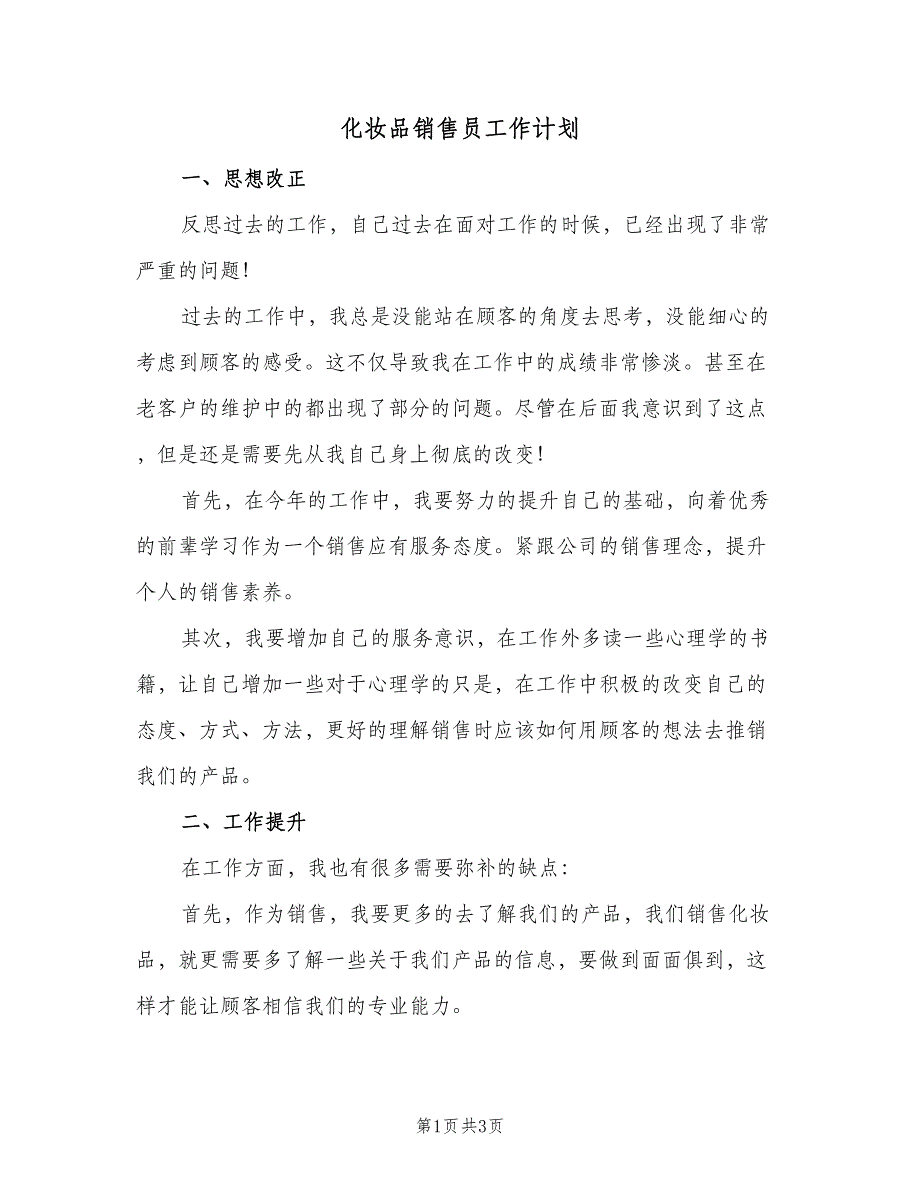 化妆品销售员工作计划
一、思想改正
反思过去的工作，自己过去在面对工作的时候，已经出现了非常
严重的问题！
过去的工作中，我总是没能站在顾客的角度去思考，没能细心的
考虑到顾客的感受。这不仅导致我在工作中的成绩非常惨淡。甚至在
老客户的维护中的都出现了部分的问题。尽管在后面我意识到了这点
，但是还是需要先从我自己身上彻底的改变！
首先，在今年的工作中，我要努力的提升自己的基础，向着优秀
的前辈学习作为一个销售应有服务态度。紧跟公司的销售理念，提升
个人的销售素养。
其次，我要增加自己的服务意识，在工作外多读一些心理学的书
籍，让自己增加一些对于心理学的只是，在工作中积极的改变自己的
态度、方式、方法，更好的理解销售时应该如何用顾客的想法去推销
我们的产品。
二、工作提升
在工作方面，我也有很多需要弥补的缺点：
首先，作为销售，我要更多的去了解我们的产品，我们销售化妆
品，就更需要多了解一些关于我们产品的信息，要做到面面俱到，这
样才能让顾客相信我们的专业能力。
第1页共3页